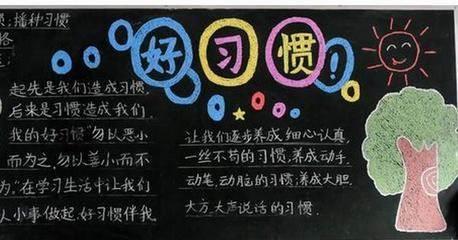 ：播种习惯
好习惯！
起先是我们造成习惯，
后来是习惯造成我们.
我的好习惯"勿以恶小
而为之，勿以善小而不
为"在学习生活中让我们
从小事做起，好习惯伴我
让我们逐步养成，细心认真，
一丝不苟的习惯，养成动手，
动笔，动脑的习惯，养成大胆，
大方，大声说话的习惯.